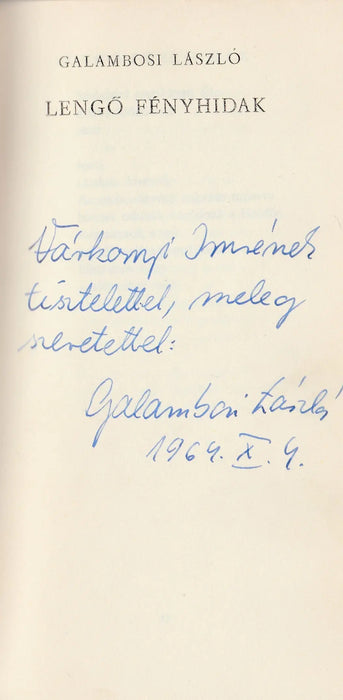 GALAMBOSI LÁSZLÓ
LENGŐ FÉNYHIDAK
Várkonyi Imrének
tisztelettel, meleg
szeretettel:
Galambosi László
1964. X. 4.